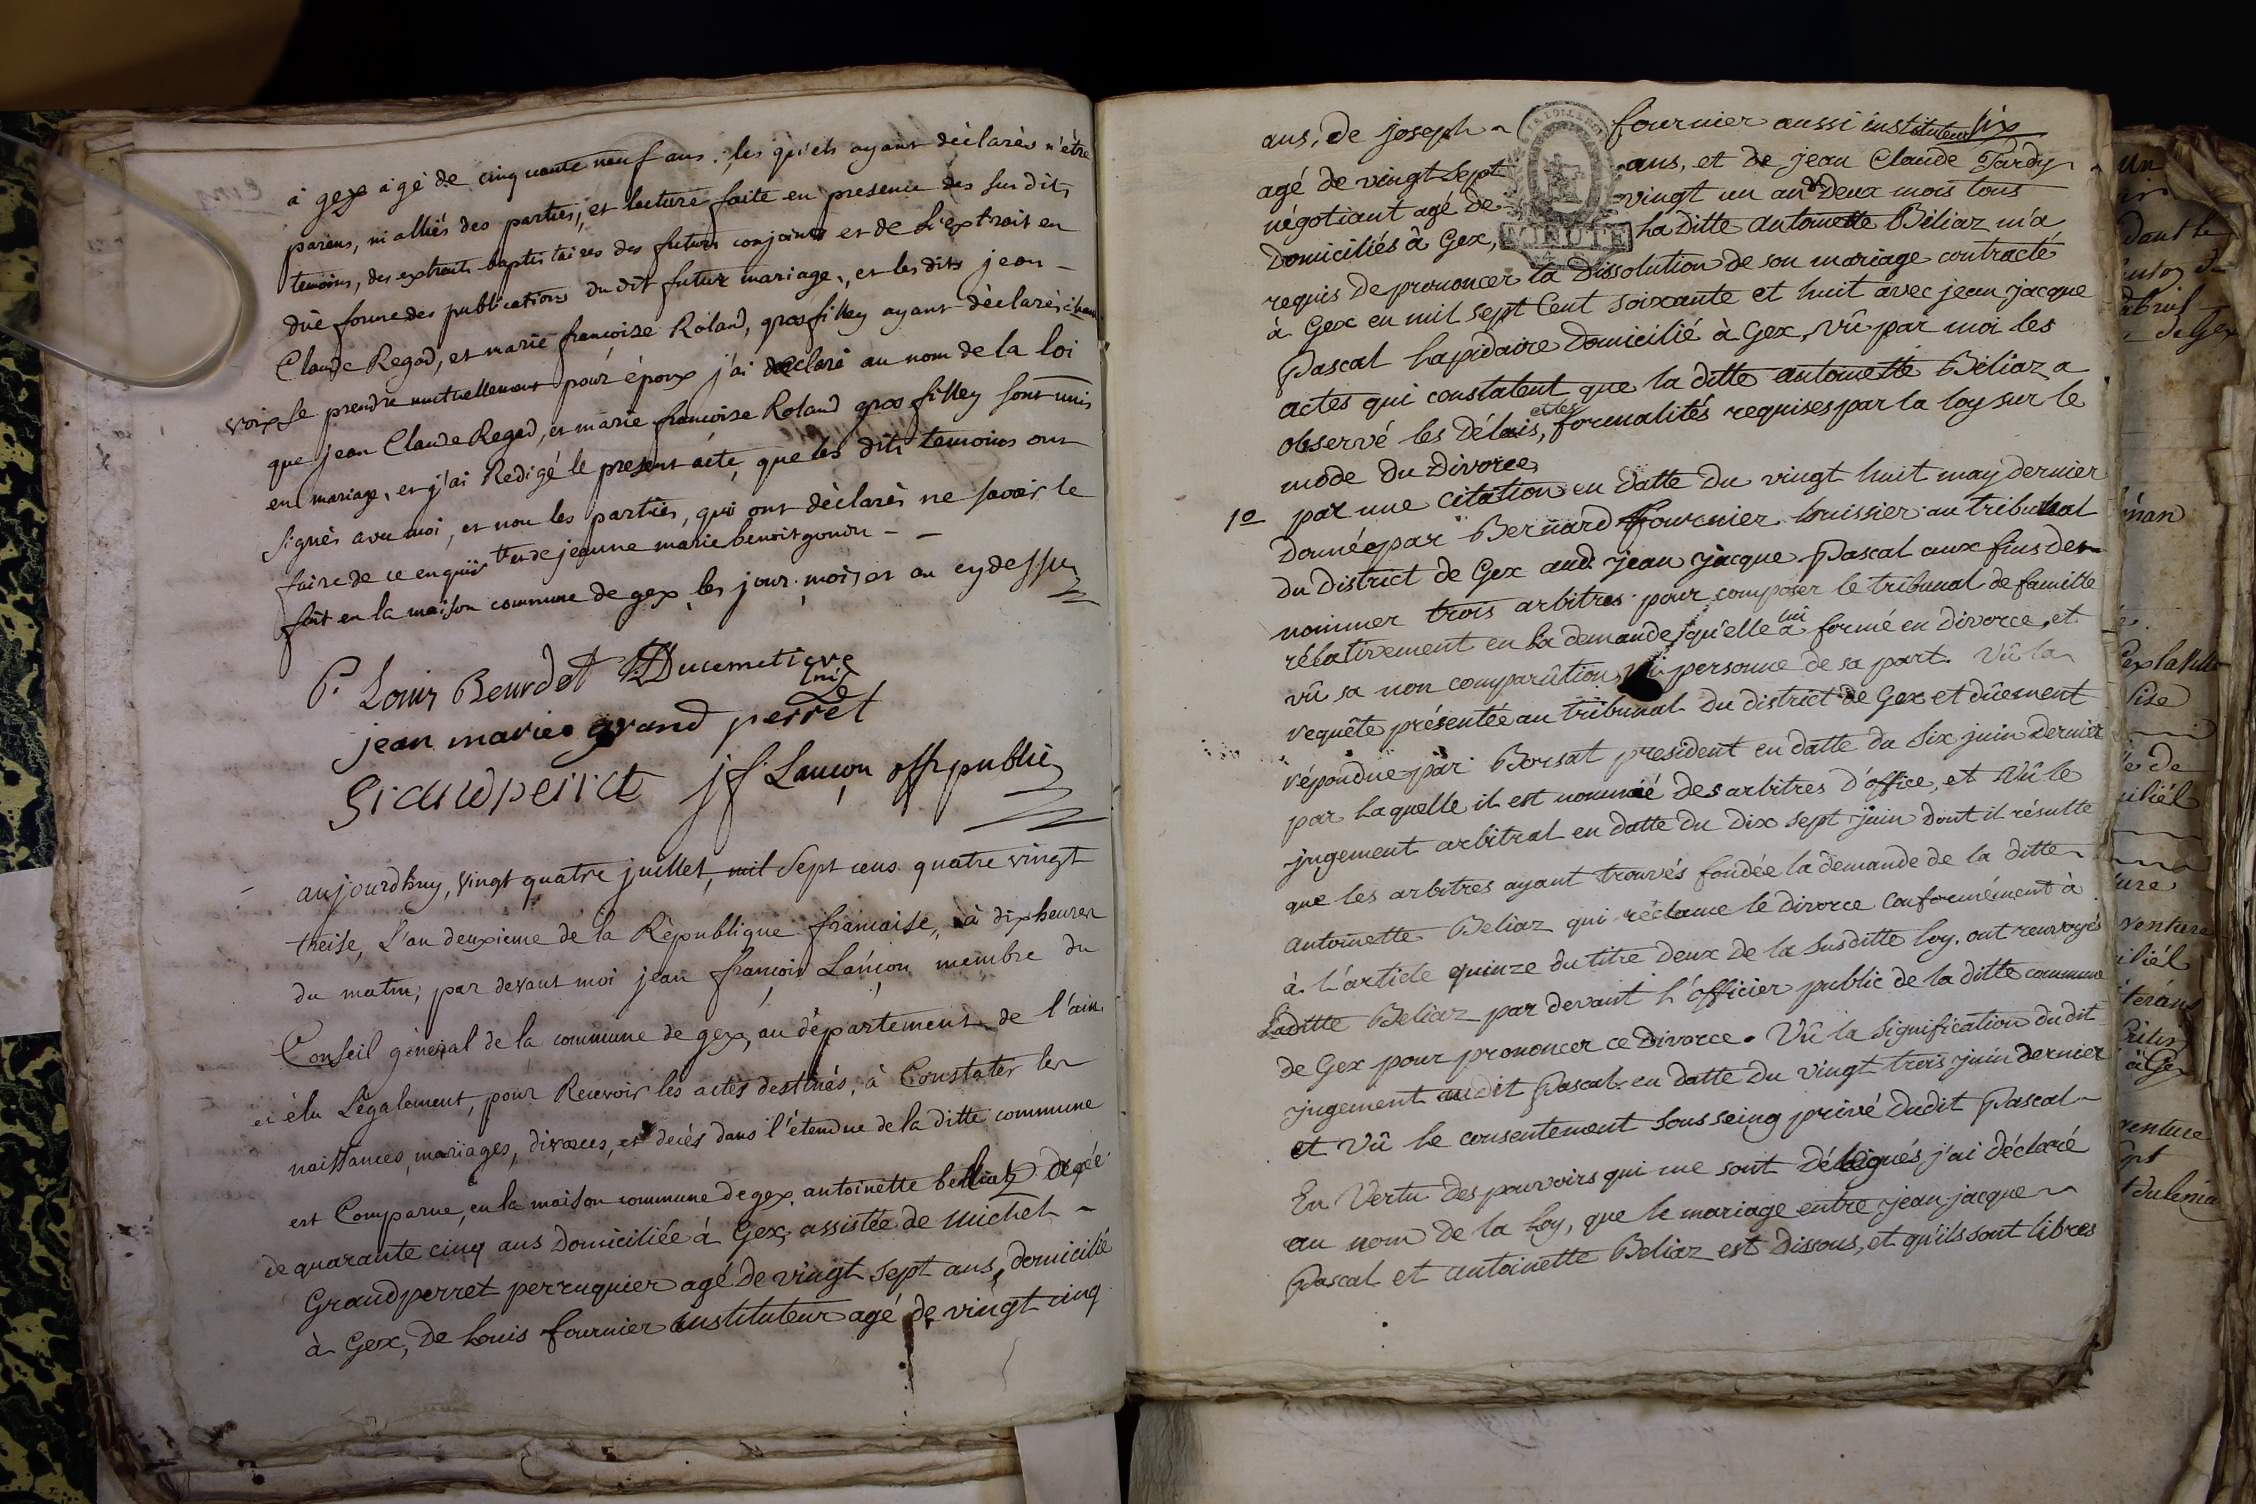 à gex agé de cinquante neuf ans, les quels ayant déclarés n'être
parens, ni alliés des parties, et lecture faite en presence des sus dits
temoins, des extraits baptistaires des futurs conjoints et de l'extrait en
düe forme des publications du dit futur mariage, et les dits jean
Claude Regad, et marie françoise Roland, grosfilley ayant déclarés à haute
voix se prendre mutuellement pour époux j'ai declaré au nom de la loi
que jean Claude Regad, et marie francoise Roland gros filley sont unis
en mariage, et j'ai Redigé le present acte, que les dits temoins ont
signés avec moi, et non les parties, qui ont déclarés ne savoir le
faire de ce enquis et de jeanne marie benoit gonin
fait en la maison commune de gex les jour mois et an cy dessus
P. Louis Beurdet Ducimetiere
jean marie grand perret
Grandperret jf. Lançon off. public
aujourdhuy, vingt quatre juillet, mil sept cens quatre vingt
treise, L'an deuxieme de la Republique francaise, à dix heures
du matin, par devant moi jean françois Lançon membre du
Conseil général de la commune de gex, au département de l'ain
élu Légalement, pour Recevoir les actes destinés, à Constater les
naissances, mariages, divorces, et decés dans l'étendue de la ditte commune
est Comparue, en la maison commune de gex antoinette beliaz agée
de quarante cinq ans domiciliée à Gex, assistée de Michel
Grandperret perruquier agé de vingt sept ans, domicilié
à Gex, de Louis fournier instituteur agé de vingt cinq
six
ans, de joseph fournier aussi instituteur
agé de vingt sept ans, et de jean Claude Tardy
négotiant agé de vingt un ans deux mois tous
domiciliés à Gex, la ditte antoinette Béliaz m'a
MINUTE
requis de prononcer la dissolution de son mariage contracté
à Gex en mil sept cent soixante et huit avec jean jacque
Pascal lapidaire domicilié à Gex, vû par moi les
actes qui constatent que la ditte antoinette Béliaz a
observé les délais, et les formalités requises par la loy sur le
mode du divorce,
1o par une citation en datte du vingt huit may dernier
donnée par Bernard fournier huissier au tribunal
du district de Gex aud. jean jacque Pascal aux fins de
nommer trois arbitres pour composer le tribunal de famille
rélativement en la demande qu'elle a lui formé en divorce, et
vû sa non comparûtion ni personne de sa part. Vû la
requête présentée au tribunal du district de Gex et dûement
répondue par Borsat president en datte du six juin dernier
par laquelle il est nommé des arbitres d'office, et Vû le
jugement arbitral en datte du dix sept juin dont il résulte
que les arbitres ayant trouvés fondée la demande de la ditte
antoinette Beliaz qui réclame le divorce conformément à
à l'article quinze du titre deux de la susditte loy, ont renvoyés
Laditte Beliaz par devant l'officier public de la ditte commune
de Gex pour prononcer ce divorce. Vû la signification dudit
jugement audit Pascal en datte du vingt trois juin dernier
et Vû le consentement sous seing privé dudit Pascal
En Vertu des pouvoirs qui me sont délégués j'ai déclaré
au nom de la Loy, que le mariage entre jean jacque
Pascal et antoinette Beliaz est dissous, et qu'ils sont libres